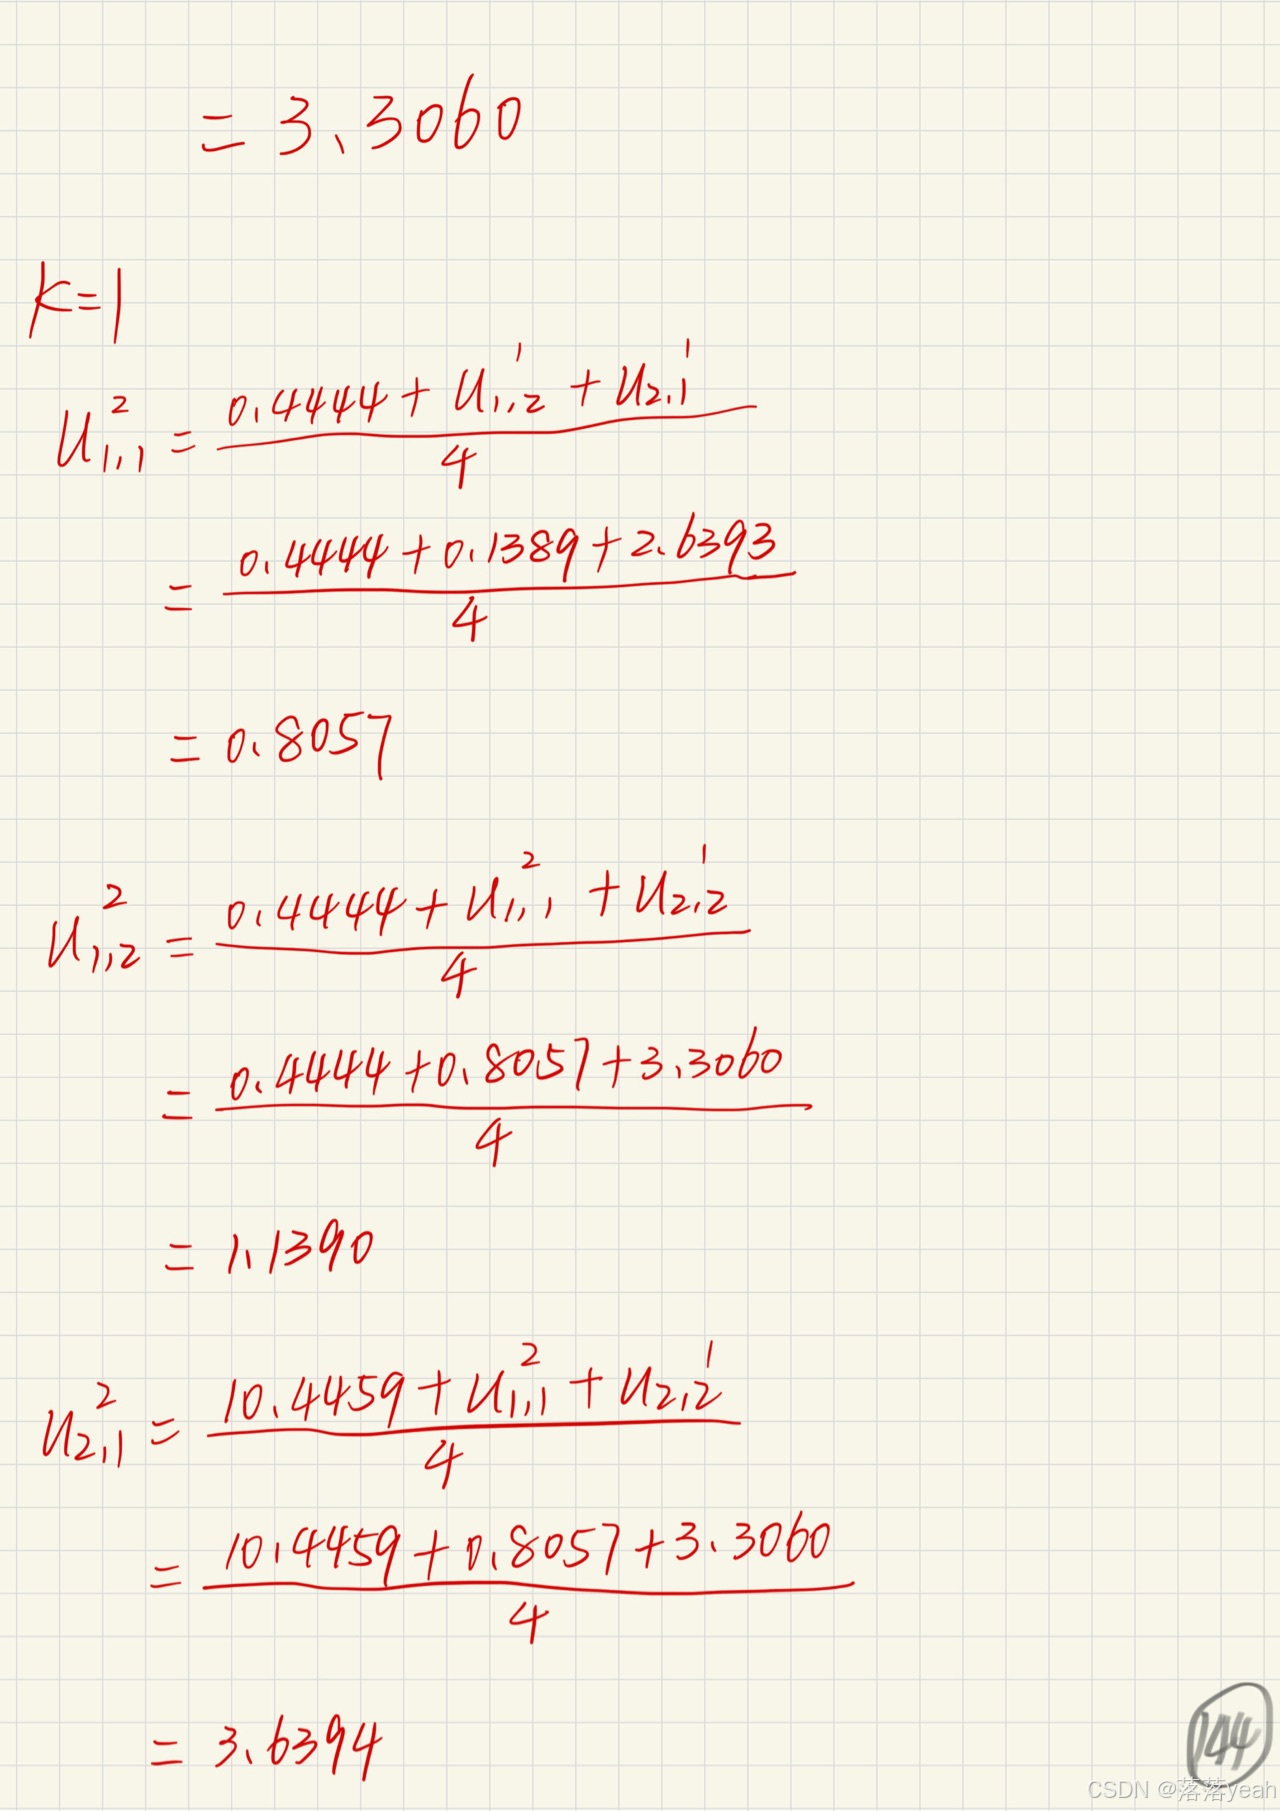 = 3.3060
k=1
u_{1,1}^{2} = \frac{0.4444 + u_{1,2}^{1} + u_{2,1}^{1}}{4}
= \frac{0.4444 + 0.1389 + 2.6393}{4}
= 0.8057
u_{1,2}^{2} = \frac{0.4444 + u_{1,1}^{2} + u_{2,2}^{1}}{4}
= \frac{0.4444 + 0.8057 + 3.3060}{4}
= 1.1390
u_{2,1}^{2} = \frac{10.4459 + u_{1,1}^{2} + u_{2,2}^{1}}{4}
= \frac{10.4459 + 0.8057 + 3.3060}{4}
= 3.6394
144
CSDN @落落yeah